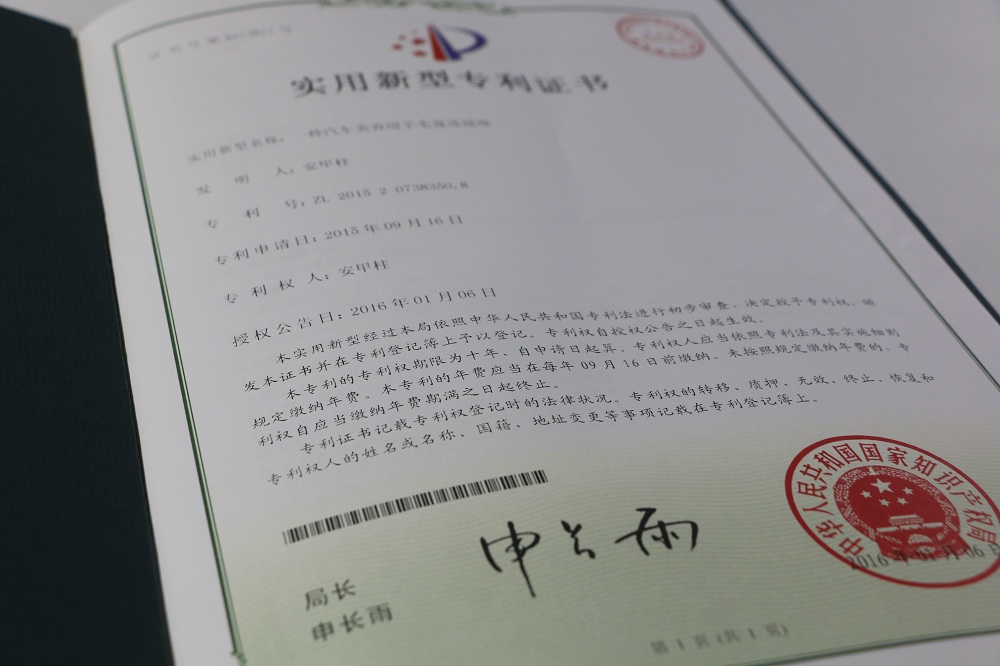 实用新型专利证书
实用新型名称：一种汽车美容用羊毛盘连接
发 明 人：安甲柱
专 利 号：ZL 2015 2 0738350.8
专利申请日：2015年09月16日
专 利 权 人：安甲柱
授权公告日：2016年01月06日
本实用新型经过本局依照中华人民共和国专利法进行初步审查，决定授予专利权，颁
发本证书并在专利登记簿上予以登记。专利权自授权公告之日起生效。
本专利的专利权期限为十年，自申请日起算。专利权人应当依照专利法及其实施细则
规定缴纳年费。本专利的年费应当在每年09月16日前缴纳。未按照规定缴纳年费的，专
利权自应当缴纳年费期满之日起终止。
专利证书记载专利权登记时的法律状况。专利权的转移、质押、无效、终止、恢复和
专利权人的姓名或名称、国籍、地址变更等事项记载在专利登记簿上。
局长
申长雨
申长雨
中华人民共和国国家知识产权局
2016年01月06日
第 1 页 (共 1 页)